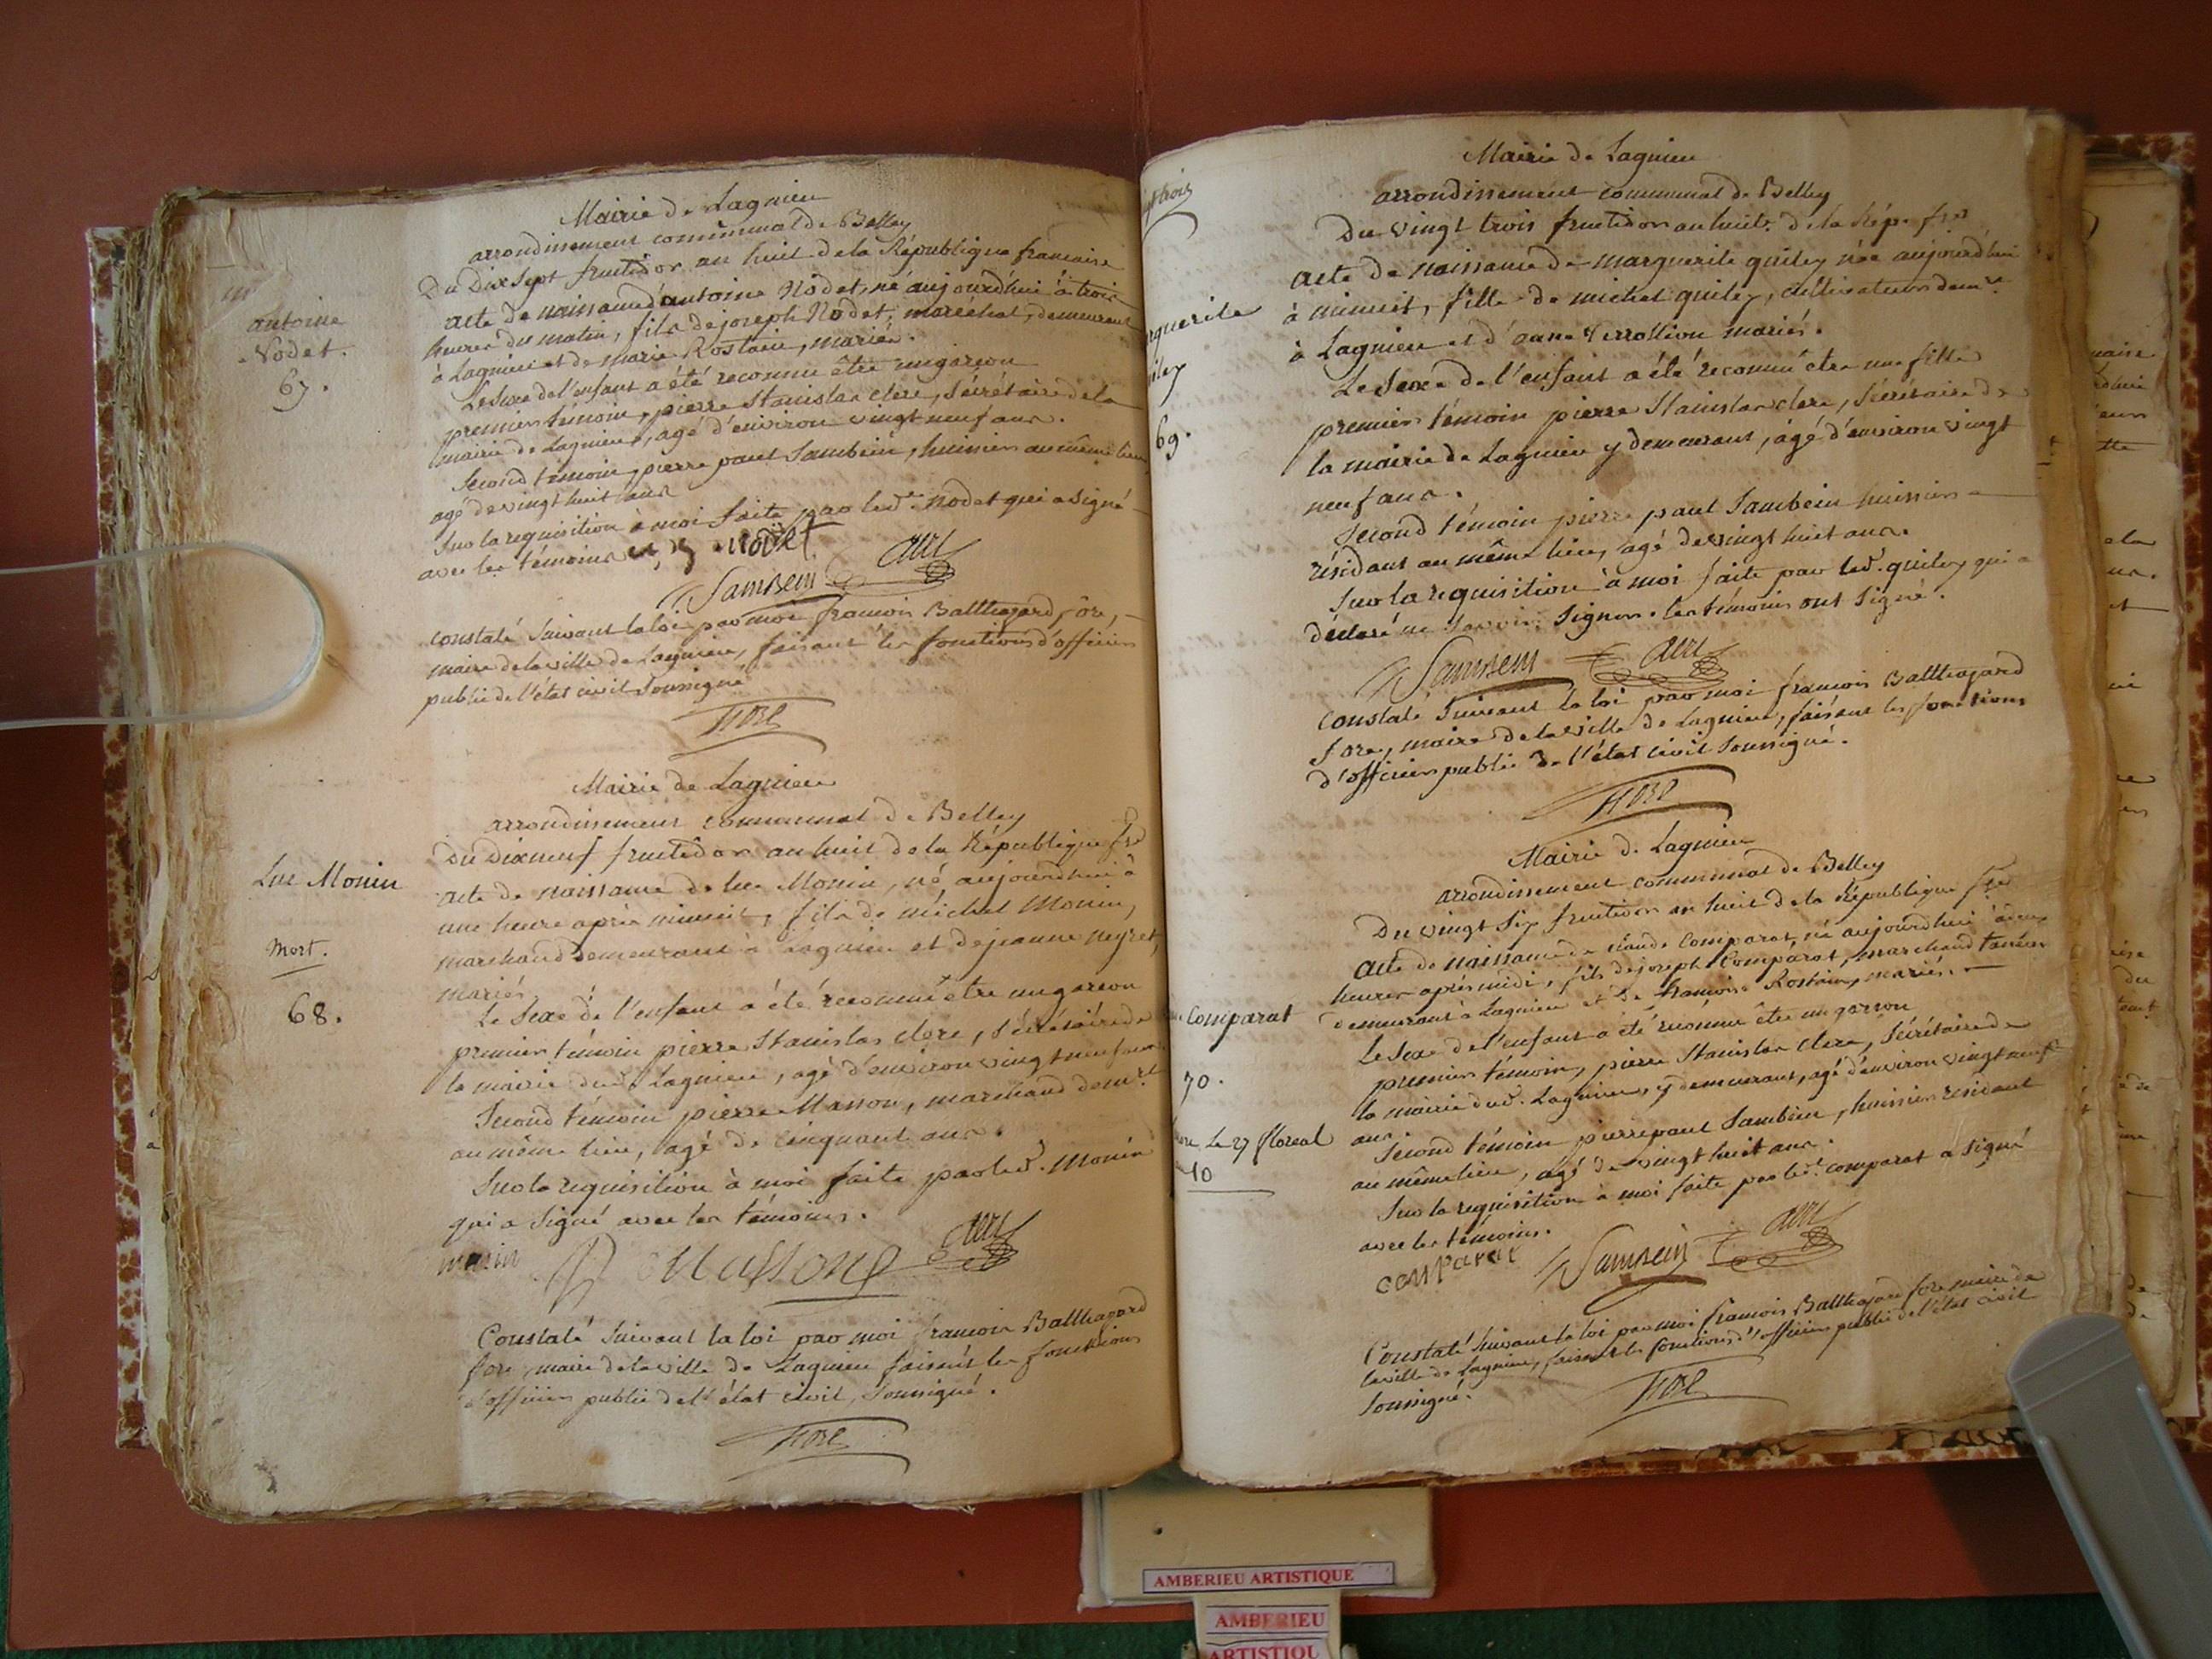 Mairie de Lagnieu
arrondissement communal de Belley
Du Dix Sept fructidor an huit de la République francaise
acte de naissance d'antoine Nodet, né aujourd'hui à trois
heures du matin, fils de joseph Nodet, maréchal, demeurant
à Lagnieu et de marie Rostain, mariés.
Le Sexe de l'enfant a été reconnu être un garçon
premier témoin, pierre Stanislas clerc, Sécrétaire de la
mairie de Lagnieu, agé d'environ vingt neuf ans.
Second témoin, pierre paul Sambein, huissier au même lieu
agé de vingt huit ans
Sur la requisition à moi faite par led. Nodet qui a Signé
avec les témoins
nodet
Sambein
constaté Suivant la loi par moi francois Balthazard fore,
maire de la ville de Lagnieu, faisant les fonctions d'officier
public de l'état civil Soussigné
fore
antoine
Nodet.
67.
Mairie de Lagnieu
arrondissement communal de Belley
Du Dix neuf fructidor an huit de la République fse
acte de naissance de luc Monin, né aujourd'hui à
une heure après minuit, fils de michel Monin,
marchand demeurant à Lagnieu et de jeanne neyret,
mariés.
Le Sexe de l'enfant a été reconnu être un garcon
premier témoin pierre Stanislas clerc, Sécrétaire de
la mairie dud. Lagnieu, agé d'environ vingt neuf ans
Second témoin pierre Masson, marchand demt
au même lieu, agé de cinquant ans.
Sur la requisition à moi faite par led. Monin
qui a Signé avec les témoins.
monin
Masson
Constaté Suivant la loi par moi francois Balthazard
fore, maire de la ville de Lagnieu faisant les fonctions
d'officier public de l'état civil, Soussigné.
fore
Luc Monin
Mort.
68.
Mairie de Lagnieu
arrondissement communal de Belley
Du vingt trois fructidor an huit. de la Rép. fse
acte de naissance de marguerite quiley née aujourd'hui
à minuit, fille de michel quiley, cultivateur demt
à Lagnieu et d'anne mariés.
Le Sexe de l'enfant a été reconnu être une fille
premier témoin pierre Stanislas clerc, Sécrétaire de
la mairie de Lagnieu y demeurant, agé d'environ vingt
neuf ans.
Second témoin pierre paul Sambein huissier
résidant au même lieu, agé de vingt huit ans.
Sur la requisition à moi faite par led. quiley qui a
déclaré ne Savoir Signer. les témoins ont Signé.
Sambein
Constaté Suivant la loi par moi francois Balthazard
fore, maire de la ville de Lagnieu, faisant les fonctions
d'officier public de l'état civil Soussigné.
fore
rguerite
iley
69.
Mairie de Lagnieu
arrondissement communal de Belley
Du vingt Six fructidor an huit de la République fse
acte de naissance de claude Comparat, né aujourd'hui à deux
heures après midi, fils de joseph Comparat, marchand taneur
demeurant à Lagnieu et de francoise Rostain, mariés.
Le Sexe de l'enfant a été reconnu être un garcon
premier témoin, pierre Stanislas clerc, Sécrétaire de
la mairie dud. Lagnieu, y demeurant, agé d'environ vingt neuf
ans
Second témoin pierre paul Sambein, huissier résidant
au même lieu, agé de vingt huit ans.
Sur la requisition à moi faite par led. comparat a Signé
avec les témoins.
comparat
Sambein
Constaté Suivant la loi par moi francois Balthazard fore maire de
la ville de Lagnieu, faisant les fonctions d'officier public de l'état civil
Soussigné.
fore
Comparat
70.
Le 27 floreal
10
AMBERIEU ARTISTIQUE
AMBERIEU
ARTISTIQU